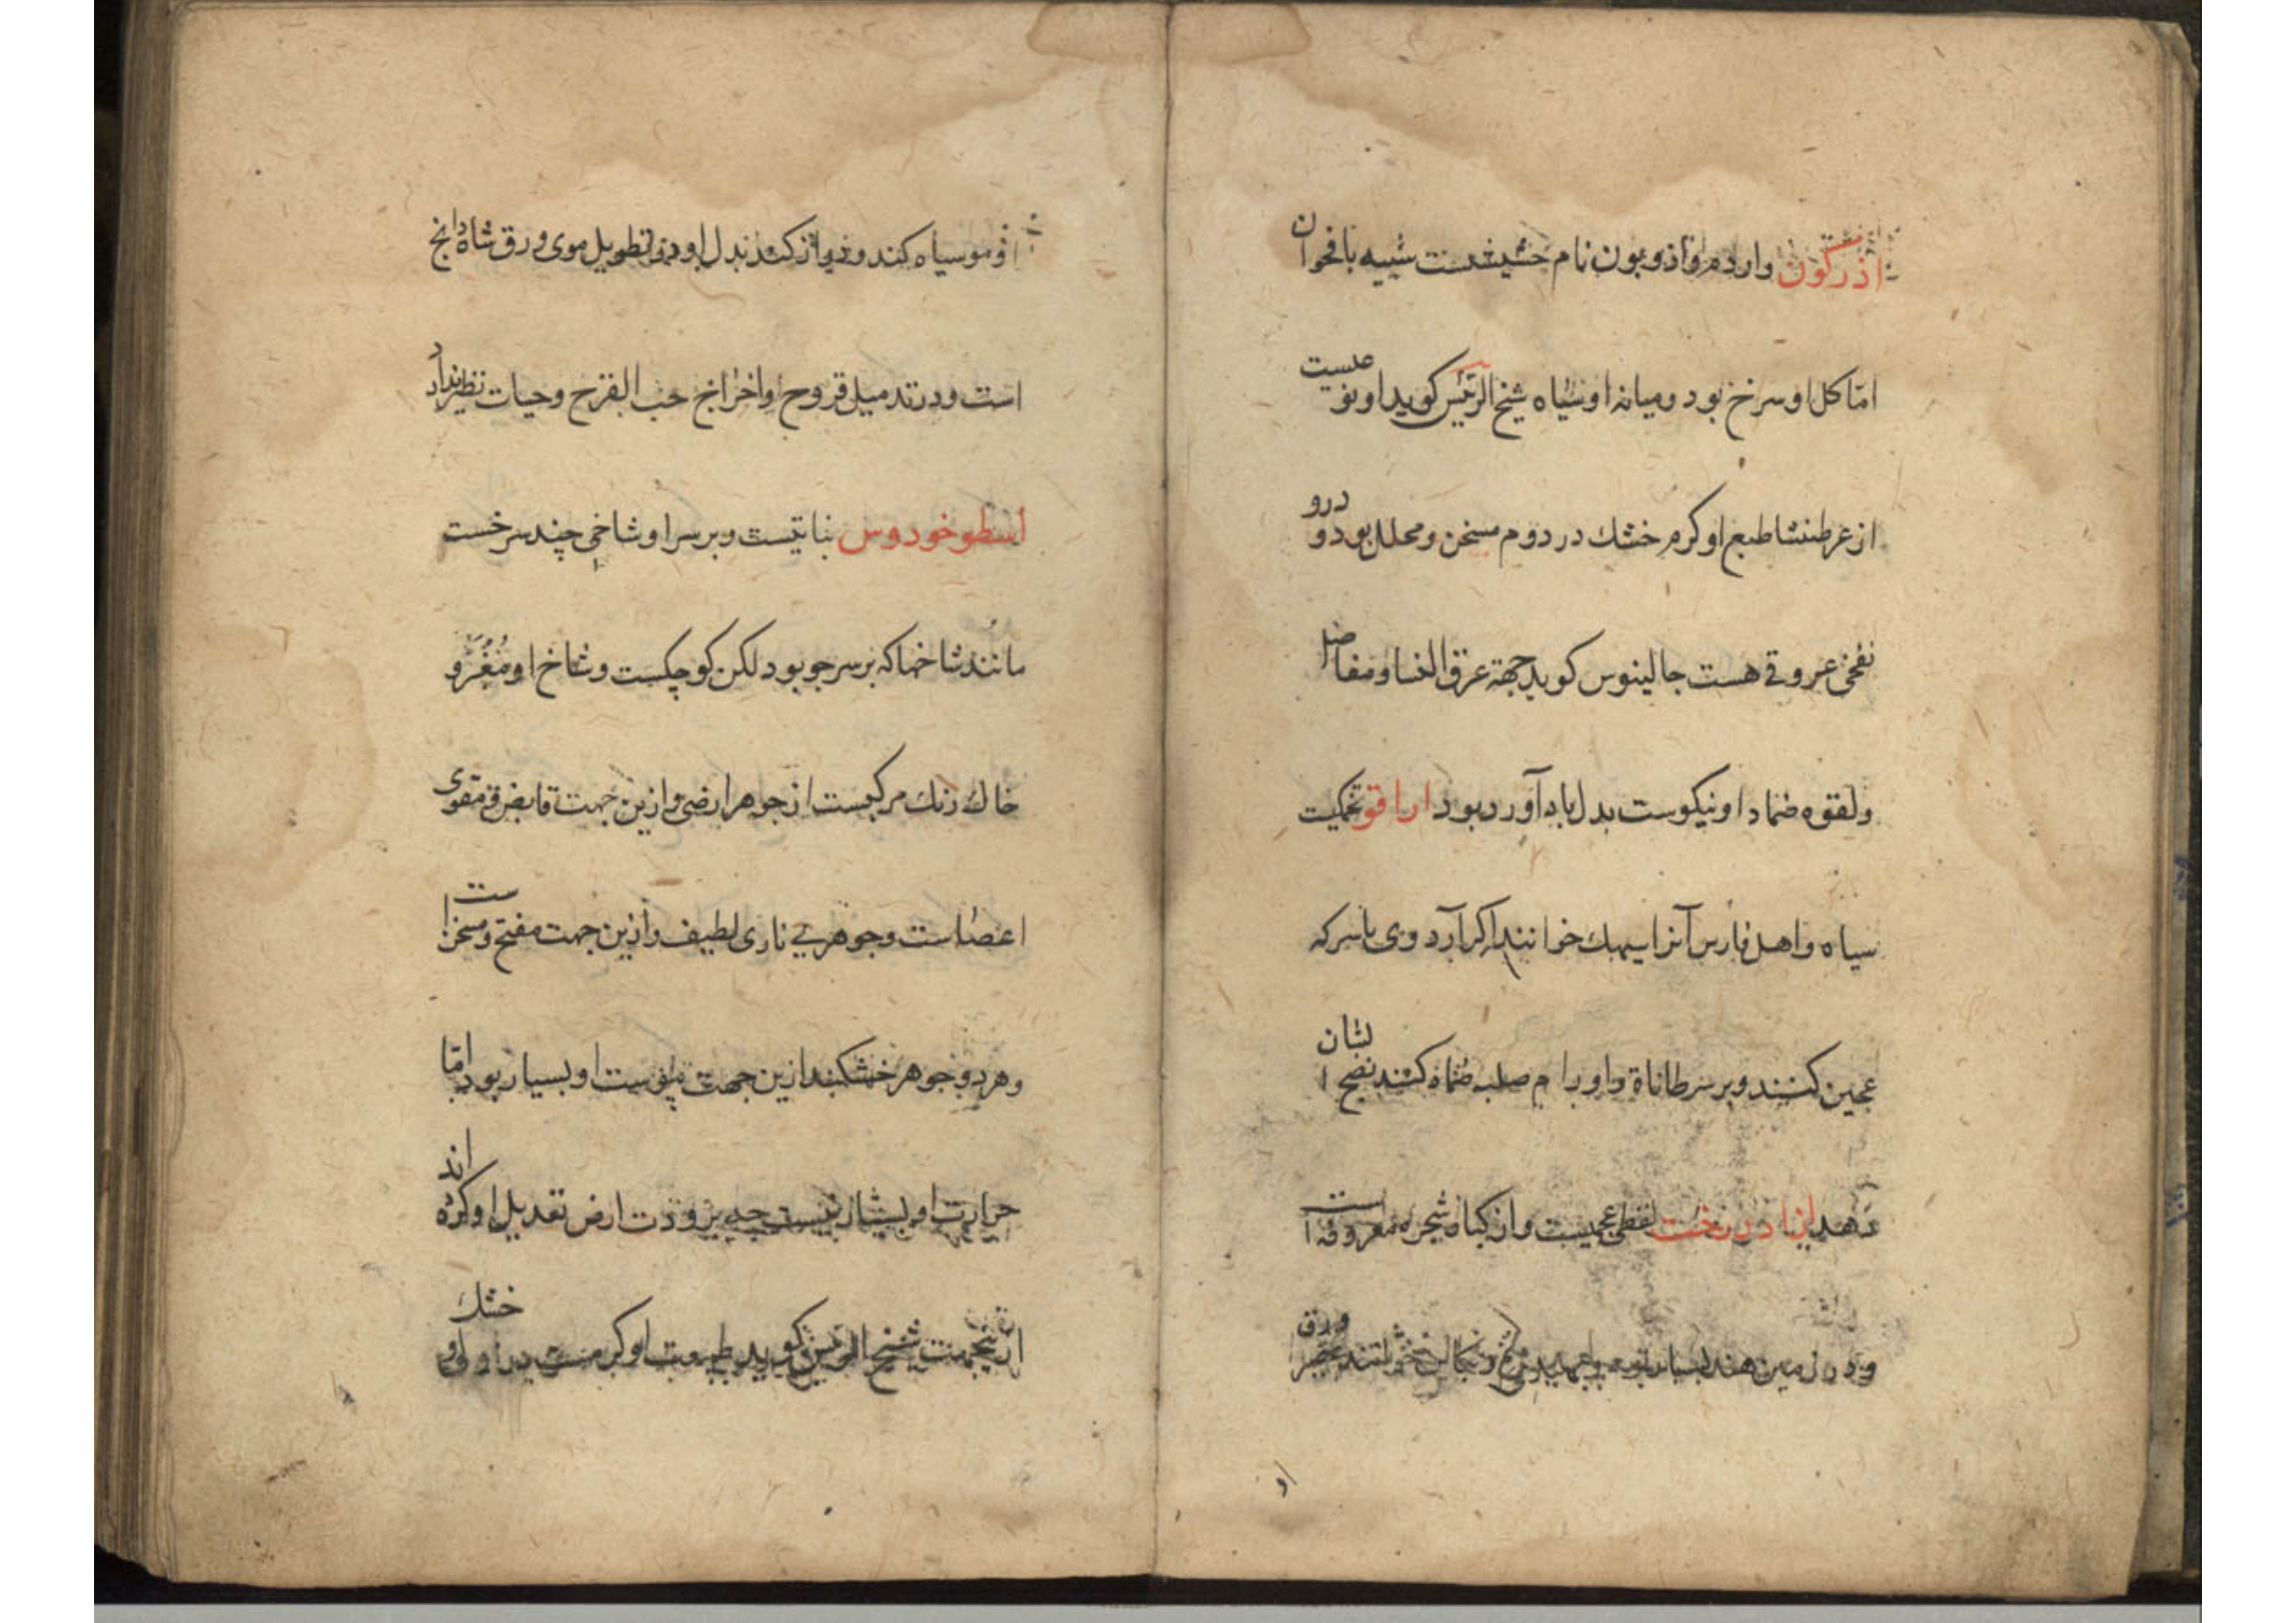 اذرکون واردم واذویون نام حشیشست شبیه باقحوان
امّا کل او سرخ بود ومیانه او سیاه شیخ الرئیس کوید او نوعیست
از عرطنشا طبع او کرم خشك در دوم مسخن ومحلل بود ودرو
نفخی عروقی هست جالینوس کوید جهة عرق النسا ومفاصل
ولقوه ضماد او نیکوست بدل باد آورد بود اراقو تخمیت
سیاه واهل فارس آنرا سیهك خوانند اکر آرد وی باسرکه
عجین کنند وبر سرطاناة واورام صلبه ضماد کنند نضج ایشان
دهد ازاد درخت لفظی عجمیست واز کبار شجره معروفه است
ودر زمین هند بسیار بود ورق
او
او مو سیاه کند ودراز کند بدل او در تطویل موی ورق شاه دانج
است ودر تدمیل قروح واخراج حب القرح وحیات نظیر ندارد
اسطوخودوس نباتیست وبر سر او شاخی چند سرخست
مانند شاخها که بر سر جو بود لکن کوچکست وشاخ او مُغْبَرّ و
خاك رنك مرکبست از جوهر ارضی وازین جهت قابض ومقوی
اعضاست وجوهریی ناری لطیف وازین جهت مفتح ومسخن است
وهر دو جوهر خشکیند ازین جهت یبوست او بسیار بود امّا
حرارت او بسیار نیست چه برودت ارض تعدیل او کرده اند
ازینجهت شیخ الرئیس کوید طبیعت او کرمست در اول و خشك